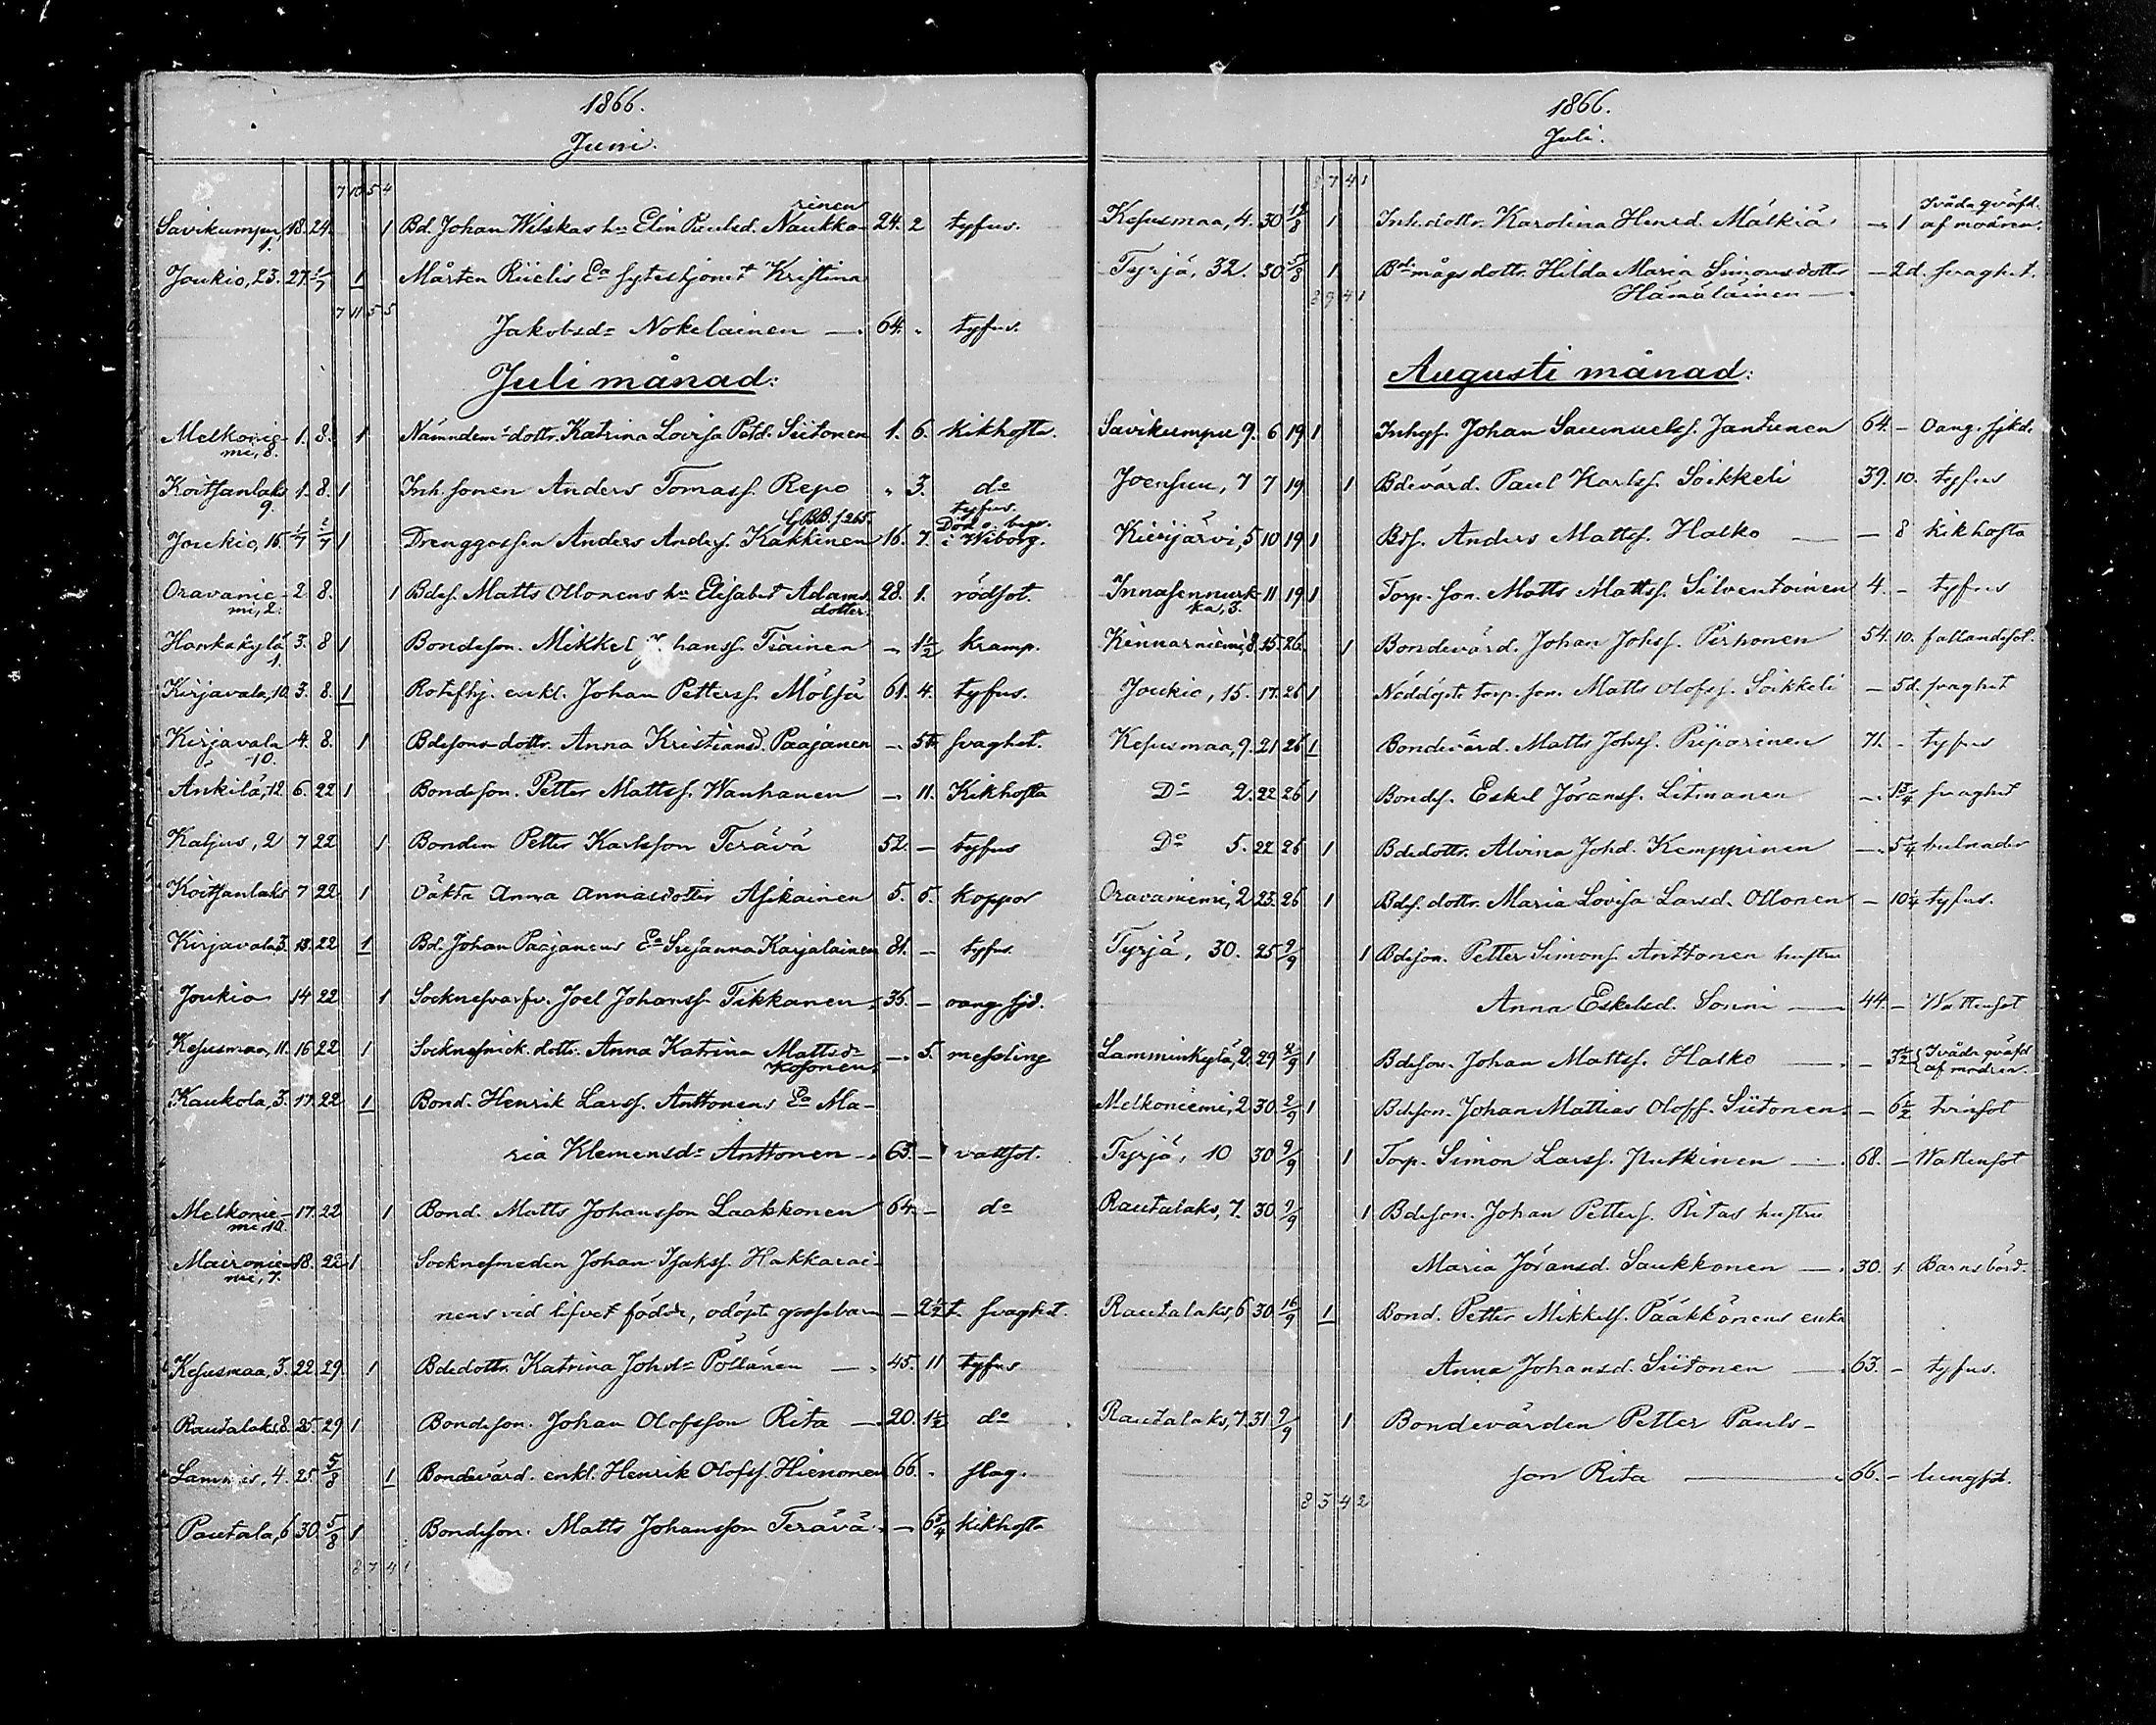 1866.
Juni.
7 10 5 4
rinen
Savikumpu, 18. 24. 1 Bd. Johan Wilskas hu Elin Paulsd. Naukka- 24. 2 tyfus.
1.
Joukio, 23. 27. 1/7 1 Mårten Riielis Ea syteshjonet Kristina
7 11 5 5
Jakobsdr Nokelainen —. 64. „ tyfus.
Juli månad:
Melkonie- 1. 8. 1 Nämndem.s dottr. Katrina Lovisa Petd. Siitonen 1. 6. kikhosta.
mi, 8.
Koitsanlaks 1. 8. 1 Inh. sonen Anders Tomass. Repo „ 3. do
9.
tyfus.
G BB. f. 265. Död o. begr.
Joukio, 15. 1/7 2/7 1 Drenggossen Anders Anders. Kakkinen 16. 7. i Wiborg.
Oravanie- 2 8. 1 Bdes. Matts Ollonens hu Elisabet Adams 28. 1. rödsot.
mi, 2. dotter.
Hankakylä 3. 8 1 Bondeson. Mikkel Johanss. Tiainen — 1 1/2 kramp.
1.
Kirjavala, 10. 3. 8. 1 Rotefhj. enkl. Johan Petterss. Mölsä 61. 4. tyfus.
Kirjavala 4. 8. 1 Bdesons dottr. Anna Kristiansd. Paajanen — 5 t. svaghet.
10.
Ankilä, 12. 6. 22 1 Bondeson. Petter Mattss. Wanhanen — 11. Kikhosta
Kaljus, 2 7 22 1 Bonden Petter Karlsson Terävä 52. — tyfus
Koitsanlaks 7 22 1 Oäkta Anna Annasdotter Asikainen 5. 5. koppor
Kirjavala 3. 13. 22 1 Bd. Johan Paajanens Ea Susanna Karjalainen 81. — tyfus.
Joukio 14 22 1 Socknesvarfv. Joel Johanss. Tikkanen 35. — oang. sjd.
Kesusmaa, 11. 16 22 1 Socknesnick. dottr. Anna Katrina Mattsdr — 5. messling
Kosonen,
Kaukola, 3. 17. 22 1 Bond. Henrik Larss. Anttonens Ea Ma-
ria Klemensdr Anttonen —. 63. — vattsot.
Melkonie- 17. 22 1 Bond. Matts Johansson Laakkonen 64. — do
mi 10.
Maironie- 18. 22 1 Socknesmeden Johan Isaks. Hakkarai-
mi, 7.
nens vid lifvet födde, odöpt gossebarn — 2 1/2 t. svaghet.
Kesusmaa, 3. 22. 29. 1 Bdedottr. Katrina Johdr Pöllänen — 45. 11 tyfus
Rautalaks. 8. 25. 29 1 Bondeson. Johan Olofsson Rita — 20. 1 1/2 do
Lammis, 4. 25. 5/8 1 Bondevärd. enkl. Henrik Olofss. Hienonen 66. „ slag.
Pautala, 6 30. 5/8 1 Bondeson. Matts Johansson Terävä — 6 3/4 kikhosta
8 7 4 1
1866.
Juli.
8 7 4 1
Ivåda qväfd.
Kesusmaa, 4. 30 12/8 1 Inh. dottr. Karolina Henrd. Mälkiä —. 1 af modren.
Tyrjä, 32. 30 5/8 1 Bde mågs dottr. Hilda Maria Simonsdotter — 2 d. svaghet.
8 9 4 1 Hämäläinen —
Augusti månad:
Savikumpu 9. 6 19 1 Inhys. Johan Samuels. Jantunen 64. — Oang. sjkd.
Joensuu, 7 7 19 1 Bdevärd. Paul Karlss. Soikkeli 39. 10. tyfus
Kivijärvi, 5 10 19 1 Bds. Anders Matts. Halko — — 8 kikhosta
Innasennurk- 11 19 1 Torp. son. Matts Mattss. Silventoinen 4. — tyfus
ka, 3.
Kinnarniemi, 8. 15. 26. 1 Bondevärd. Johan Johss. Pirhonen 54. 10. fallandesot.
Joukio, 15. 17. 26 1 Nöddöpte torp. son. Matts Olofss. Soikkeli — 5 d. svaghet
Kesusmaa, 9. 21 26 1 Bondevärd. Matts Johss. Piiparinen 71. — tyfus
Do 2. 22 26 1 Bondes. Eskel Jöranss. Litmanen —. 1 3/4 svaghet
Do 5. 22 26 1 Bdedottr. Alvina Johd. Kemppinen —. 5 1/4 bulnader
Oravaniemi, 2 23. 26 1 Bdes. dottr. Maria Lovisa Larsd. Ollonen — 10 1/4 tyfus.
Tyrjä, 30. 25 9/9 1 Bdeson. Petter Simons. Anttonen hustru
Anna Eskelsd. Sonni — 44. — Wattensot
Lamminkylä, 2. 29 2/9 1 Bdeson. Johan Mattss. Halko — — 3 1/2 Ivåda qväfd
af modren.
Melkoniemi, 2 30. 2/9 1 Bdeson. Johan Mattias Olofs. Siitonen — 6 1/2 tvinsot
Tyrjä, 10 30 9/9 1 Torp. Simon Larss. Putkinen — 68. — Wattensot
Rautalaks, 7. 30. 9/9 1 Bdeson. Johan Petters. Ritas hustru
Maria Jöransd. Saukkonen —. 30. 1. Barnsbörd.
Rautalaks, 6 30. 16/9 1 Bond. Petter Mikkels. Pääkkönens enka
Anna Johansd. Siitonen —. 63. — tyfus.
Rautalaks, 7. 31 9/9 1 Bondevärden Petter Pauls-
son Rita —. 66. — lungsot.
8 5 4 2